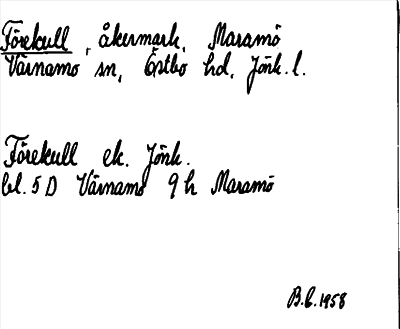 Förekull, åkermark, Maramö
Värnamo sn, Östbo hd, Jönk. l.
Förekull ek. Jönk.
bl. 5 D Värnamo 9 h Maramö
B.E. 1958